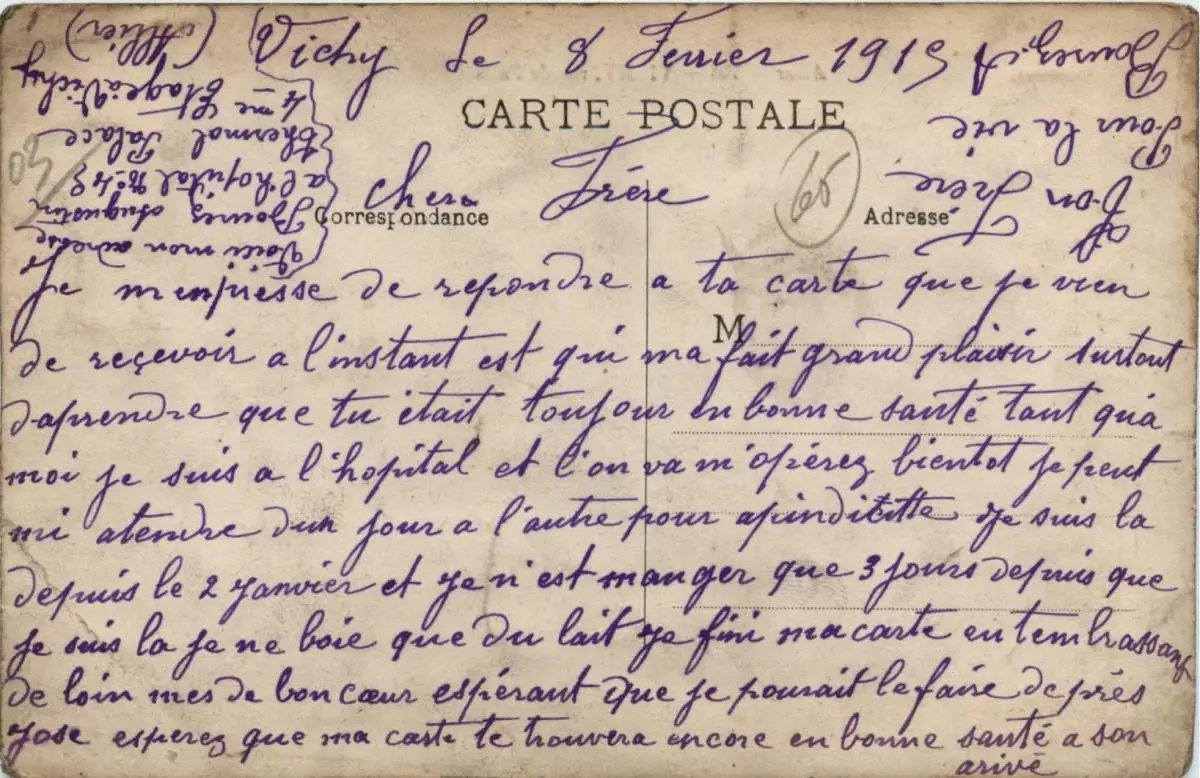 Vichy Le 8 Fevrier 1915
CARTE POSTALE
Chere Frére
Correspondance
Adresse
M
66
Je m'enpresse de repondre a ta carte que je vien
de reçevoir a l'instant est qui ma fait grand plaisir surtout
d'aprendre que tu était toujour en bonne santé tant qu'a
moi je suis a l'hopital et l'on va m'opérez bientot je peut
mi atendre dun jour a l'autre pour apindicitte je suis la
depuis le 2 Janvier et je n'est manger que 3 jours depuis que
je suis la je ne boie que du lait je fini ma carte en t'embrassant
de loin mes de bon cœur espérant que je pourait le faire de prés
Jose esperez que ma carte te trouvera encore en bonne santé a son
arivé
Ton Frére
Pour la vie
Bourez, A
Voici mon adresse
Bourez Augustin
a l'hopital N° 45
thermal Palace
4me Etage a Vichy
(Allier)